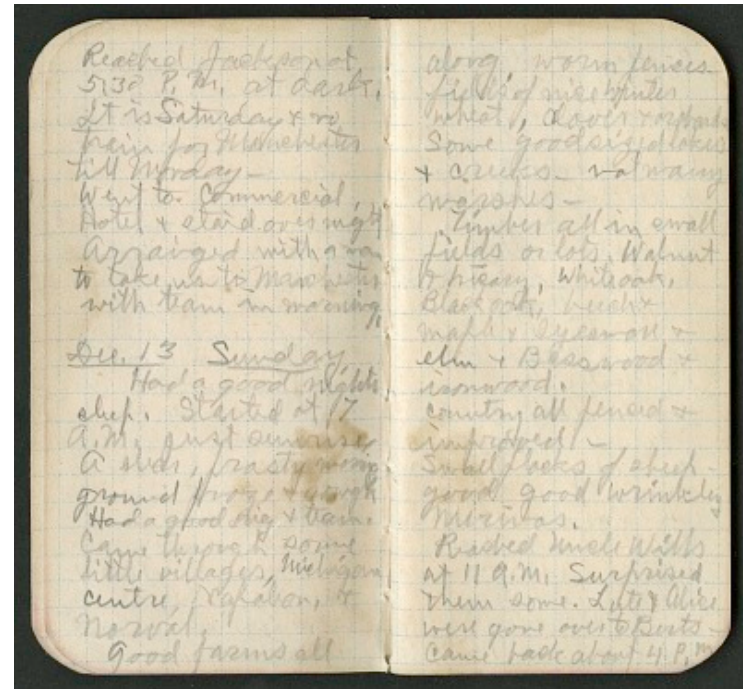 Reached Jackson at
5:30 P. M. at dark.
It is Saturday & no
train for Manchester
till Monday —
Went to Commercial
Hotel & staid over night
Arranged with a man
to take us to Manchester
with team in morning.
Dec. 13 Sunday
Had a good nights
sleep. Started at 7
A.M. just sunrise
A clear, frosty morning
ground froze & rough
Had a good rig & team.
Came through some
little villages, Michigan
centre, Napoleon, &
Norval.
Good farms all
along, worm fences
fields of nice winter
wheat, clover & orchards
Some good sized lakes
& creeks — not many
marshes —
Timber all in small
fields or lots, Walnut
& hickory, White oak,
Black oak, beech &
maple & sycamore &
elm & Basswood &
ironwood.
Country all fenced &
improved —
Small flocks of sheep —
good, good wrinkley
Merinos.
Reached Uncle Wills
at 11 A.M. Surprised
them some. & Alice
were gone over to Berts —
Came back about 4 P.M.